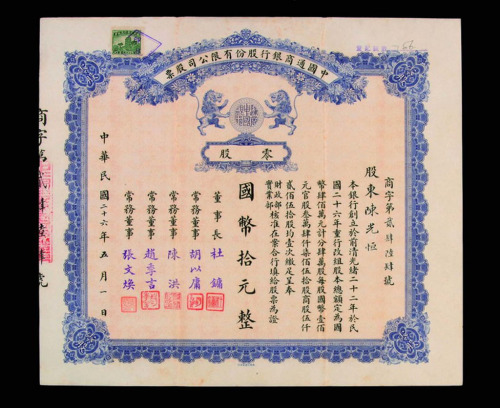 中國通商銀行股份有限公司股票
零股
商字第貳肆陸肆號
股東陳光恒
本銀行創立於前清光緒二十二年於民
國二十六年重行改組股本總額定為國
幣肆佰萬元計分肆萬股每股國幣壹佰
元官股叁萬肆仟柒佰伍拾股商股伍仟
貳佰伍拾股均壹次繳足呈奉
財政部
實業部核准在案合行填給股票為證
國幣拾元整
董事長 杜鏞
常務董事 胡以庸
常務董事 陳洪
常務董事 趙季言
常務董事 張文煥
中華民國二十六年五月一日
商字第貳肆陸肆號